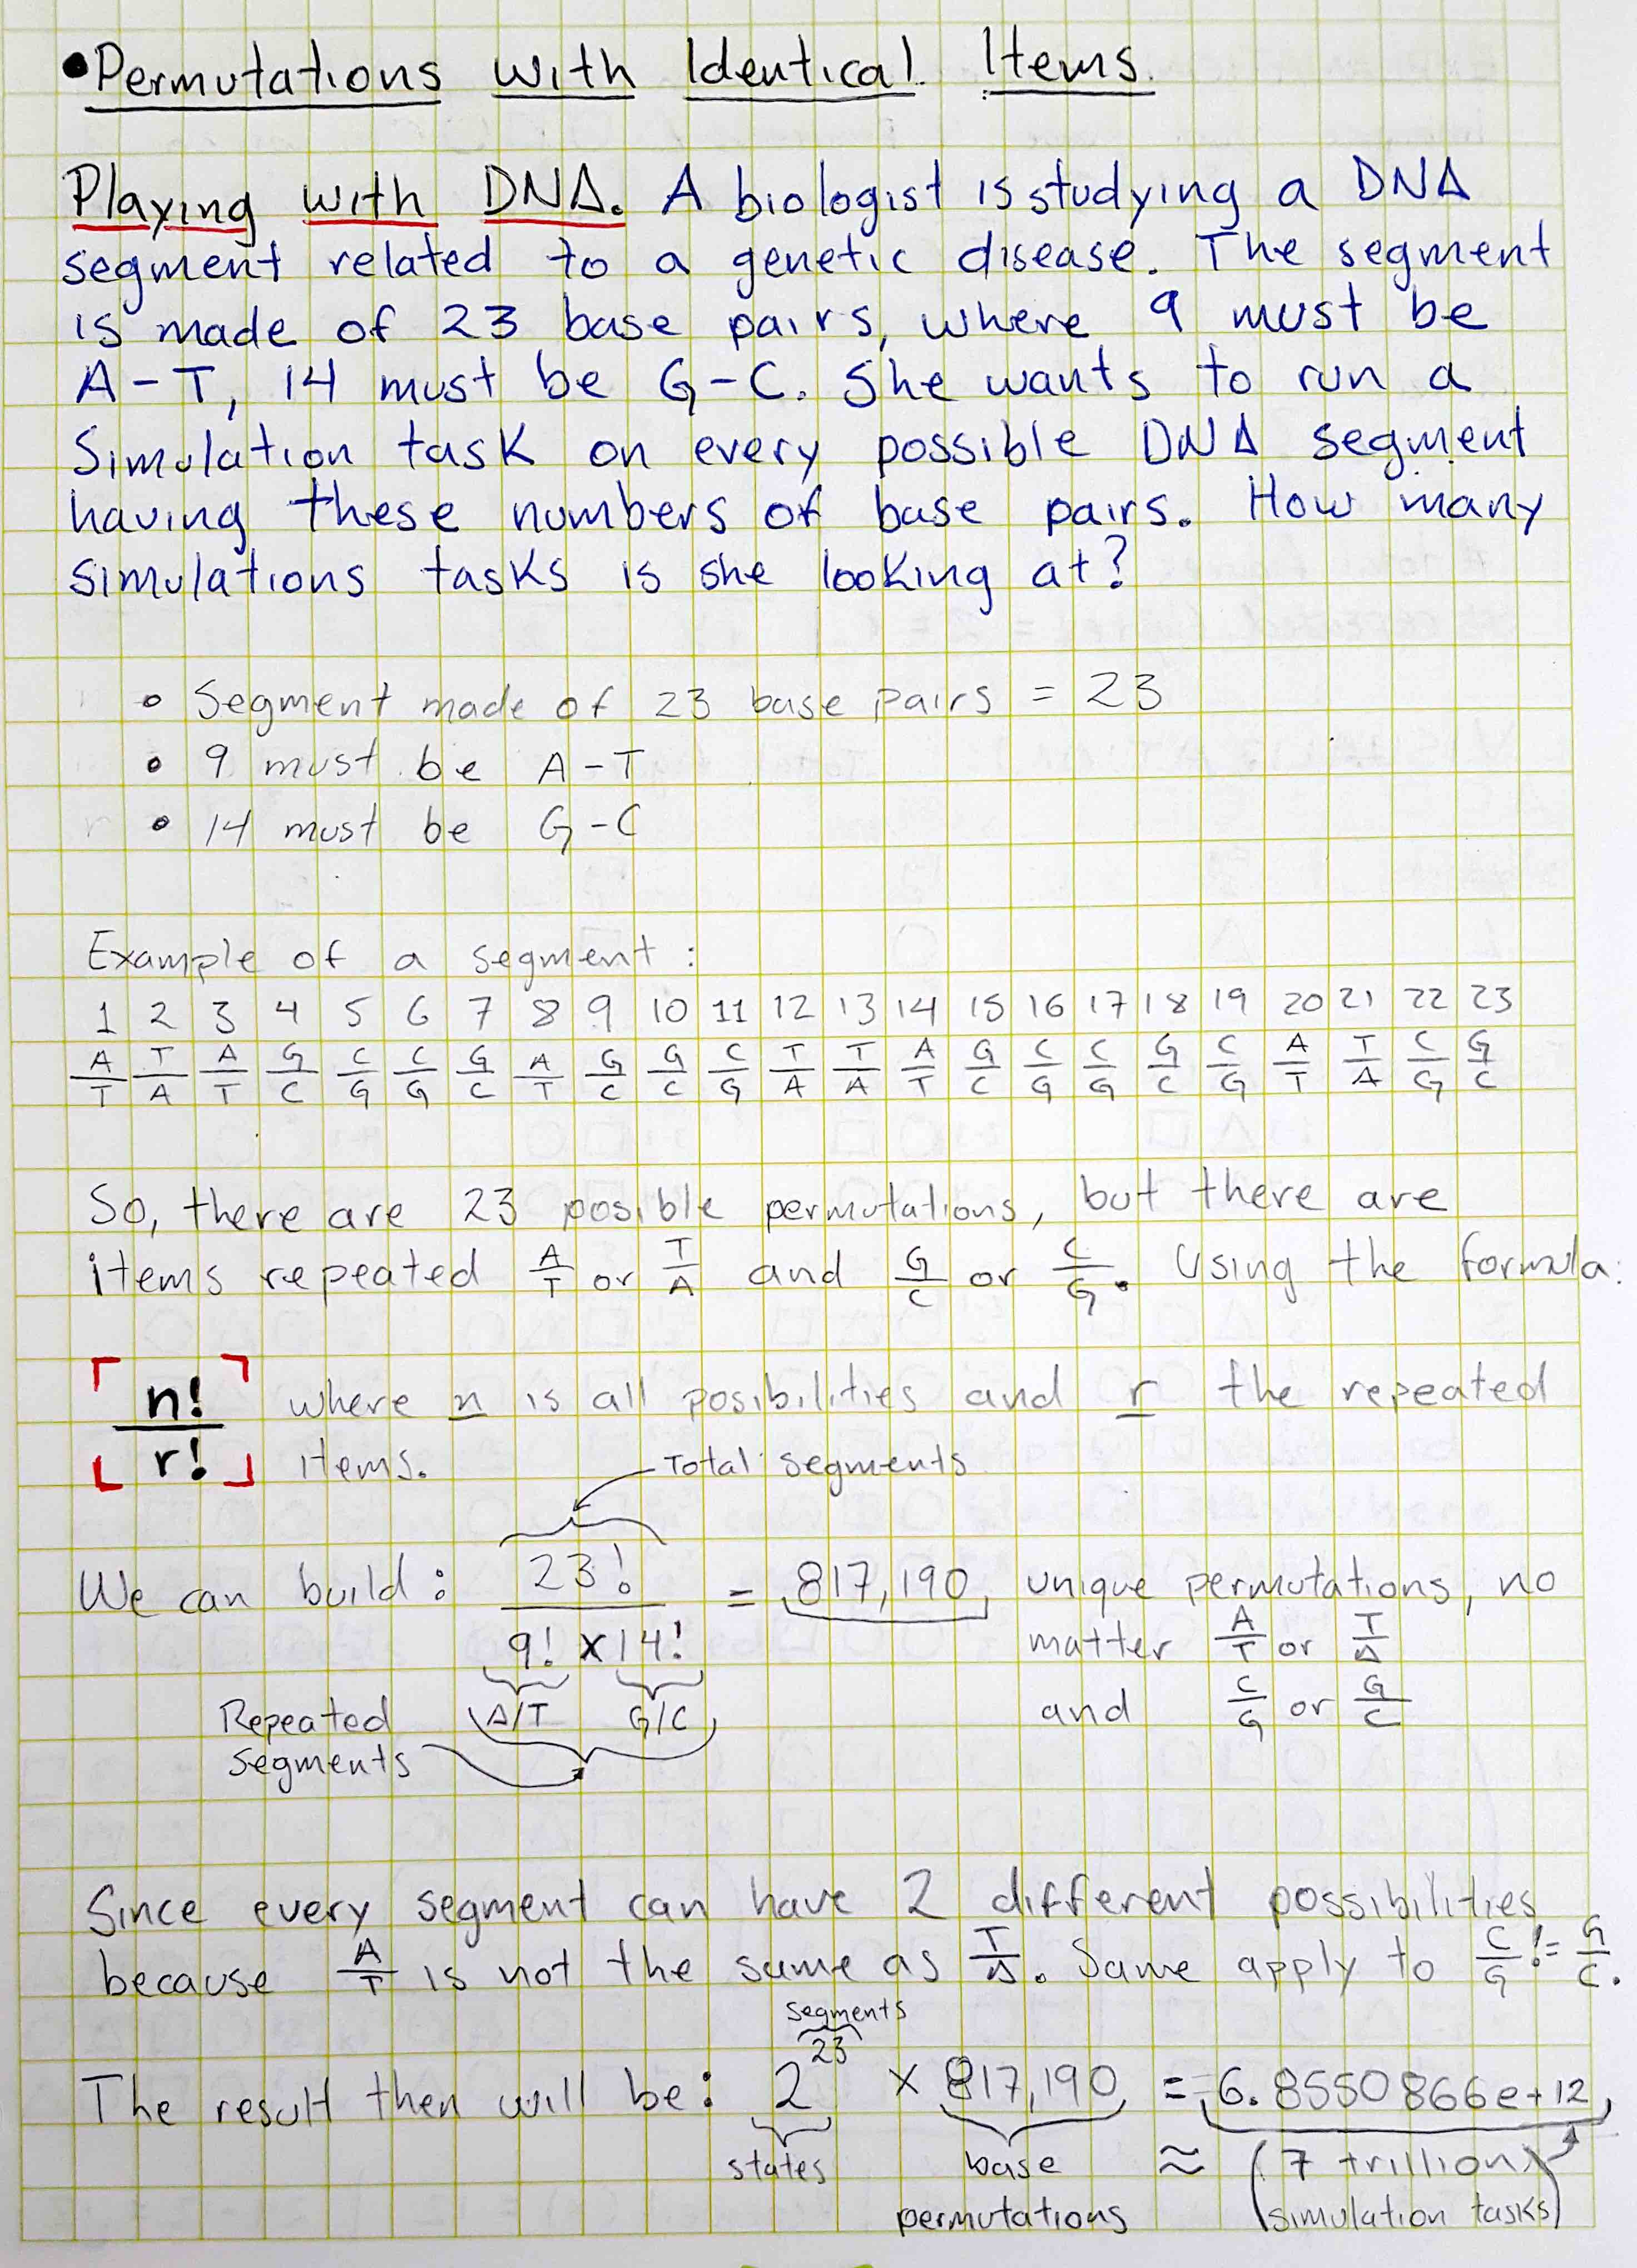 •Permutations with Identical Items.
Playing with DNA. A biologist is studying a DNA
segment related to a genetic disease. The segment
is made of 23 base pairs, where 9 must be
A-T, 14 must be G-C. She wants to run a
Simulation task on every possible DNA segment
having these numbers of base pairs. How many
simulations tasks is she looking at?
• Segment made of 23 base pairs = 23
• 9 must be A-T
• 14 must be G-C
Example of a segment:
1 2 3 4 5 6 7 8 9 10 11 12 13 14 15 16 17 18 19 20 21 22 23
A T A G C C G A G G C T T A G C C G C A T C G
T A T C G G C T C C G A A T C G G C G T A G C
So, there are 23 posible permutations, but there are
items repeated A/T or T/A and G/C or C/G. Using the formula:
n! where n is all posibilities and r the repeated
r! items.
Total segments
We can build: 23! = 817,190 unique permutations, no
9! x 14! matter A/T or T/A
Repeated A/T G/C and C/G or G/C
segments
Since every segment can have 2 different possibilities
because A/T is not the same as T/A. Same apply to C/G != G/C.
segments
The result then will be: 2^23 x 817,190 = 6.8550866e+12
states base ≈ (7 trillion)
permutations (simulation tasks)